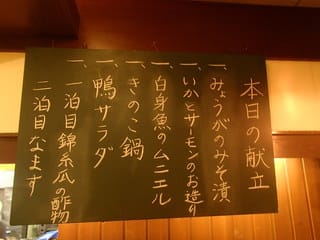 本日の献立
一、みょうがのみそ漬
一、いかとサーモンのお造り
一、白身魚のムニエル
一、きのこ鍋
一、鴨サラダ
一、一泊目錦糸瓜の酢物
二泊目なます